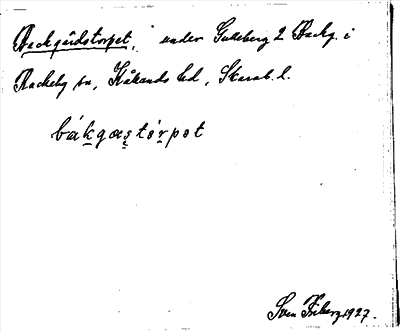 Backgårdstorpet, under Gulleberg 2 Backg. i
Rackeby sn, Kållands hd, Skarab. l.
bákgas̨tórpot
Sven Friberg 1927.